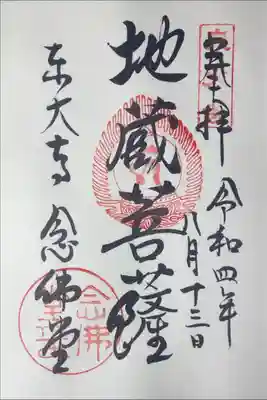 奉拝
令和四年
八月十三日
地蔵菩薩
东大寺 念佛堂